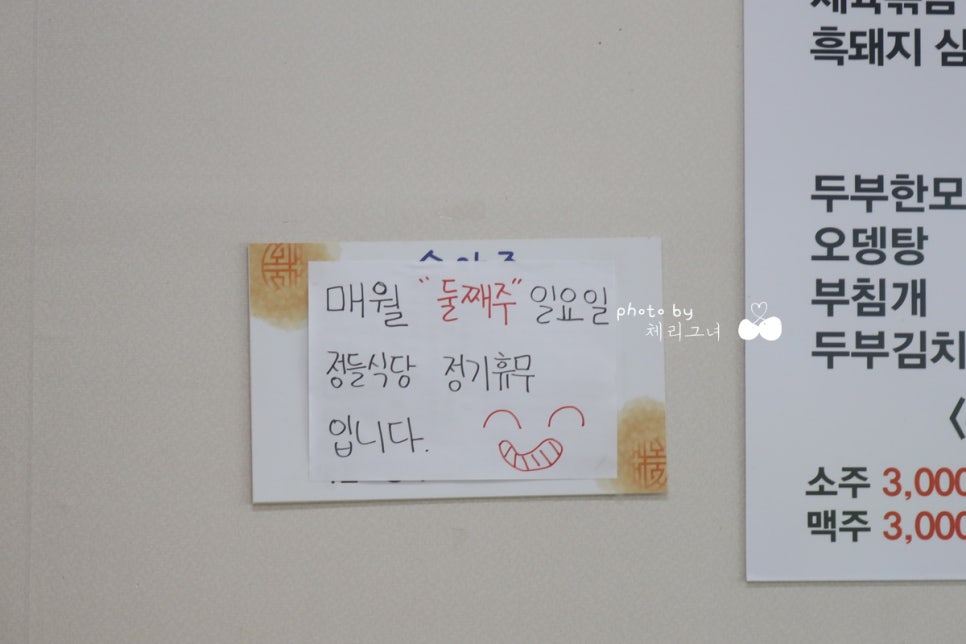 매월 "둘째주" 일요일
정들식당 정기휴무
입니다.
photo by
체리그녀
흑돼지
두부한모
오뎅탕
부침개
두부김치
〈
소주 3,000
맥주 3,000